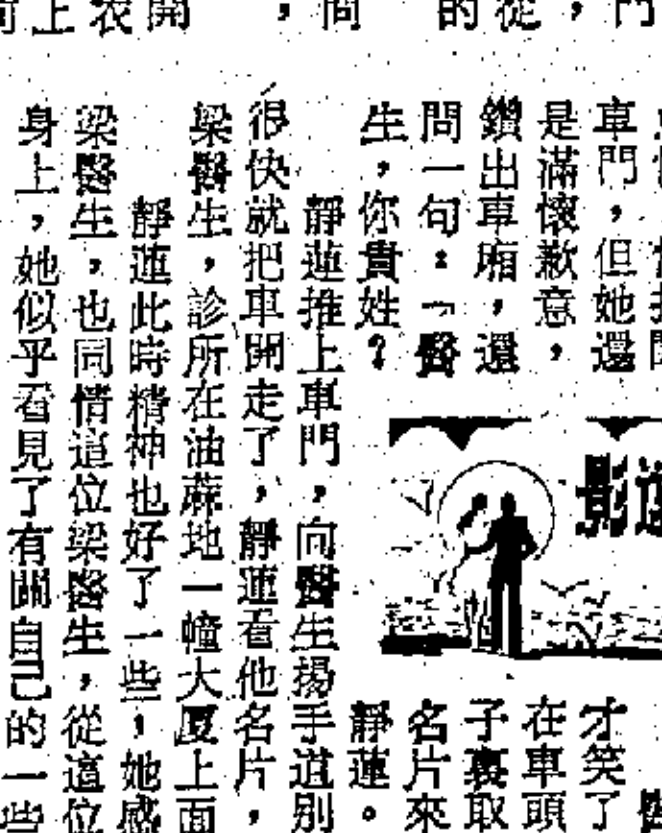 車門，但她還
是滿懷歉意，
鑽出車廂，還
問一句：「醫
生，你貴姓？
才笑了
在車頭
子裏取
名片來
靜蓮。
靜蓮推上車門，向醫生揚手道別
很快就把車開走了，靜蓮看他名片，
梁醫生，診所在油蔴地一幢大厦上面
靜蓮此時精神也好了一些，她感
梁醫生，也同情這位梁醫生，從這位
身上，她似乎看見了有關自己的一些